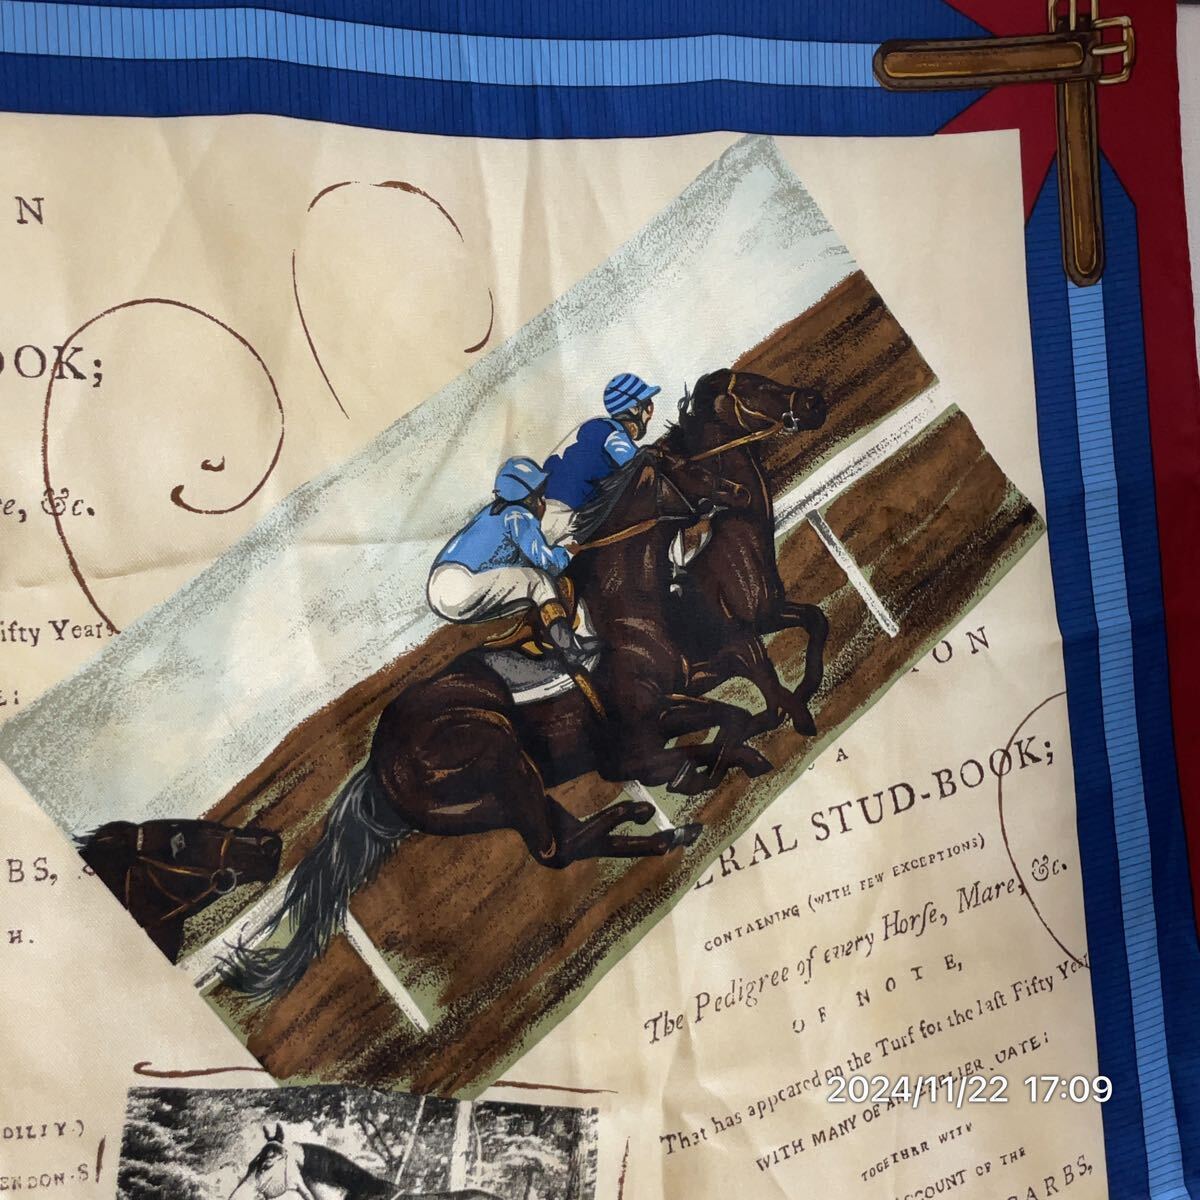 N
OOK;
re, &c.
ifty Years
E;
BS,
H.
DILLY.)
ENDON-S
TON
A
ERAL STUD-BOOK;
CONTAENING (WITH FEW EXCEPTIONS)
The Pedigree of every Horſe, Mare, &c.
OF NOTE,
That has appcared on the Turf for the laſt Fifty Year
WITH MANY OF AN EARLIER DATE;
TOGETHAR WITH
ACCOUNT OF THE
ARBS,
2024/11/22 17:09